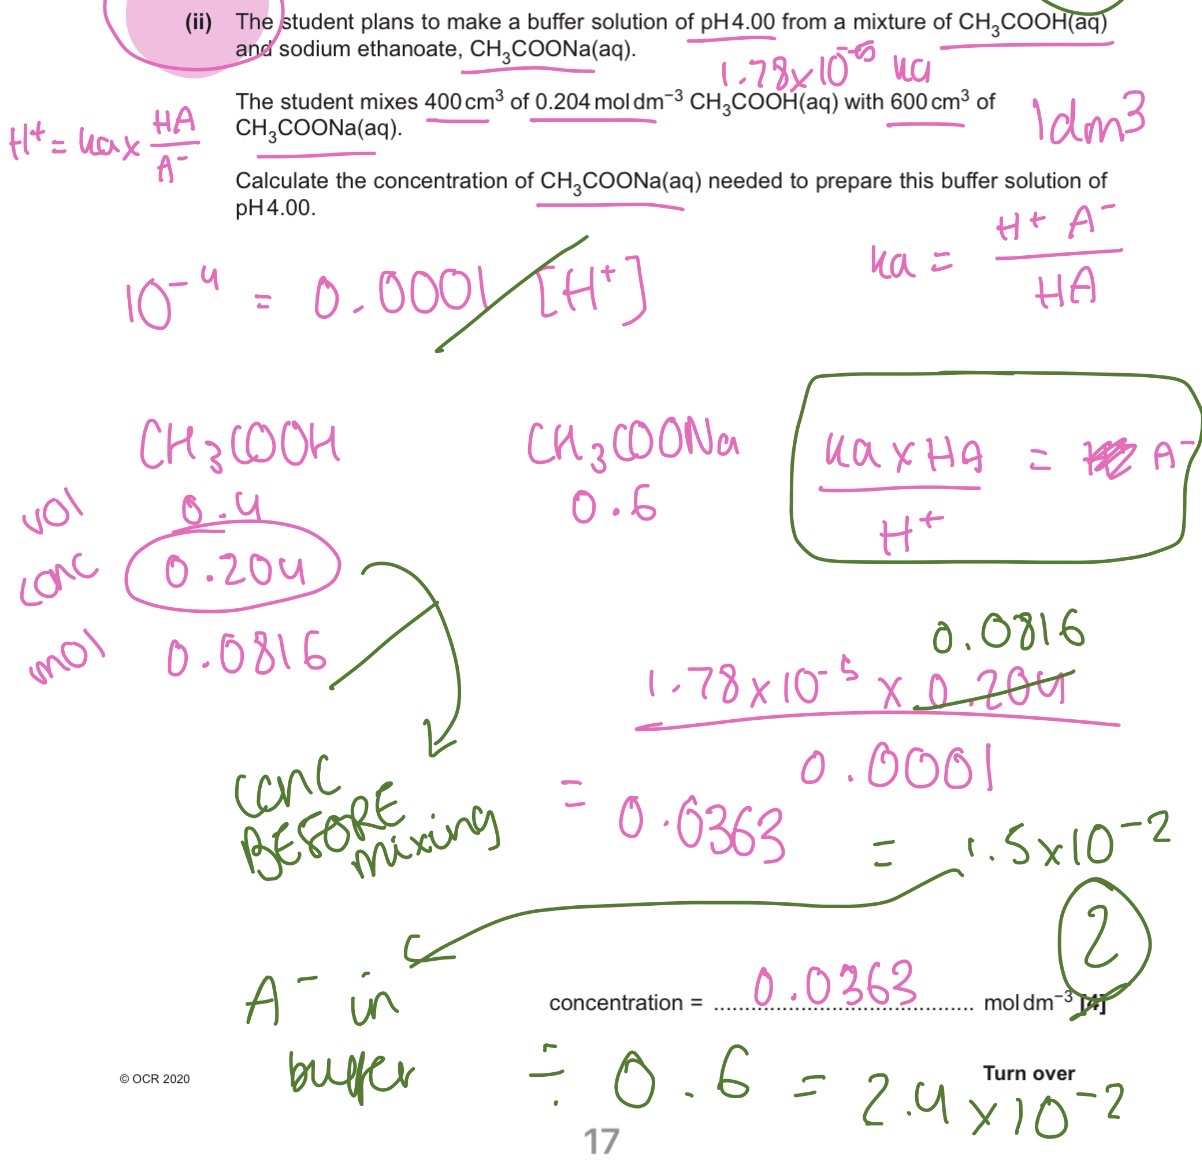 (ii) The student plans to make a buffer solution of pH 4.00 from a mixture of CH₃COOH(aq)
and sodium ethanoate, CH₃COONa(aq).
1.78x10⁻⁵ ka
The student mixes 400 cm³ of 0.204 mol dm⁻³ CH₃COOH(aq) with 600 cm³ of
CH₃COONa(aq).
1dm3
H⁺ = ka x HA
A⁻
Calculate the concentration of CH₃COONa(aq) needed to prepare this buffer solution of
pH 4.00.
ka = H⁺ A⁻
HA
10⁻⁴ = 0.0001 [H⁺]
CH₃COOH CH₃COONa
vol 0.4 0.6
conc 0.204
mol 0.0816
ka x HA = A⁻
H⁺
0.0816
1.78 x 10⁻⁵ x 0.204
0.0001
= 0.0363
= 1.5x10⁻²
conc
BEFORE
mixing
2
A⁻ in
buffer
concentration = 0.0363 mol dm⁻³ [4]
÷ 0.6 = 2.4 x 10⁻²
© OCR 2020
Turn over
17